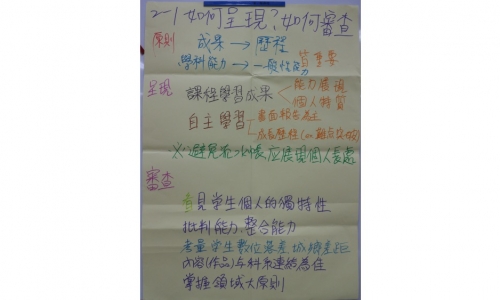 2-1 如何呈現？如何審查
原則 成果→歷程
學科能力→一般性能力 皆重要
呈現 課程學習成果 能力展現
個人特質
自主學習 書面報告為主
成長歷程(ex.難点突破)
※避免 應展現個人長處
審查
查見學生個人的獨特性
批判能力、整合能力
考量學生數位落差、城鄉差距
內容(作品)与科系連結為佳
掌握領域大原則